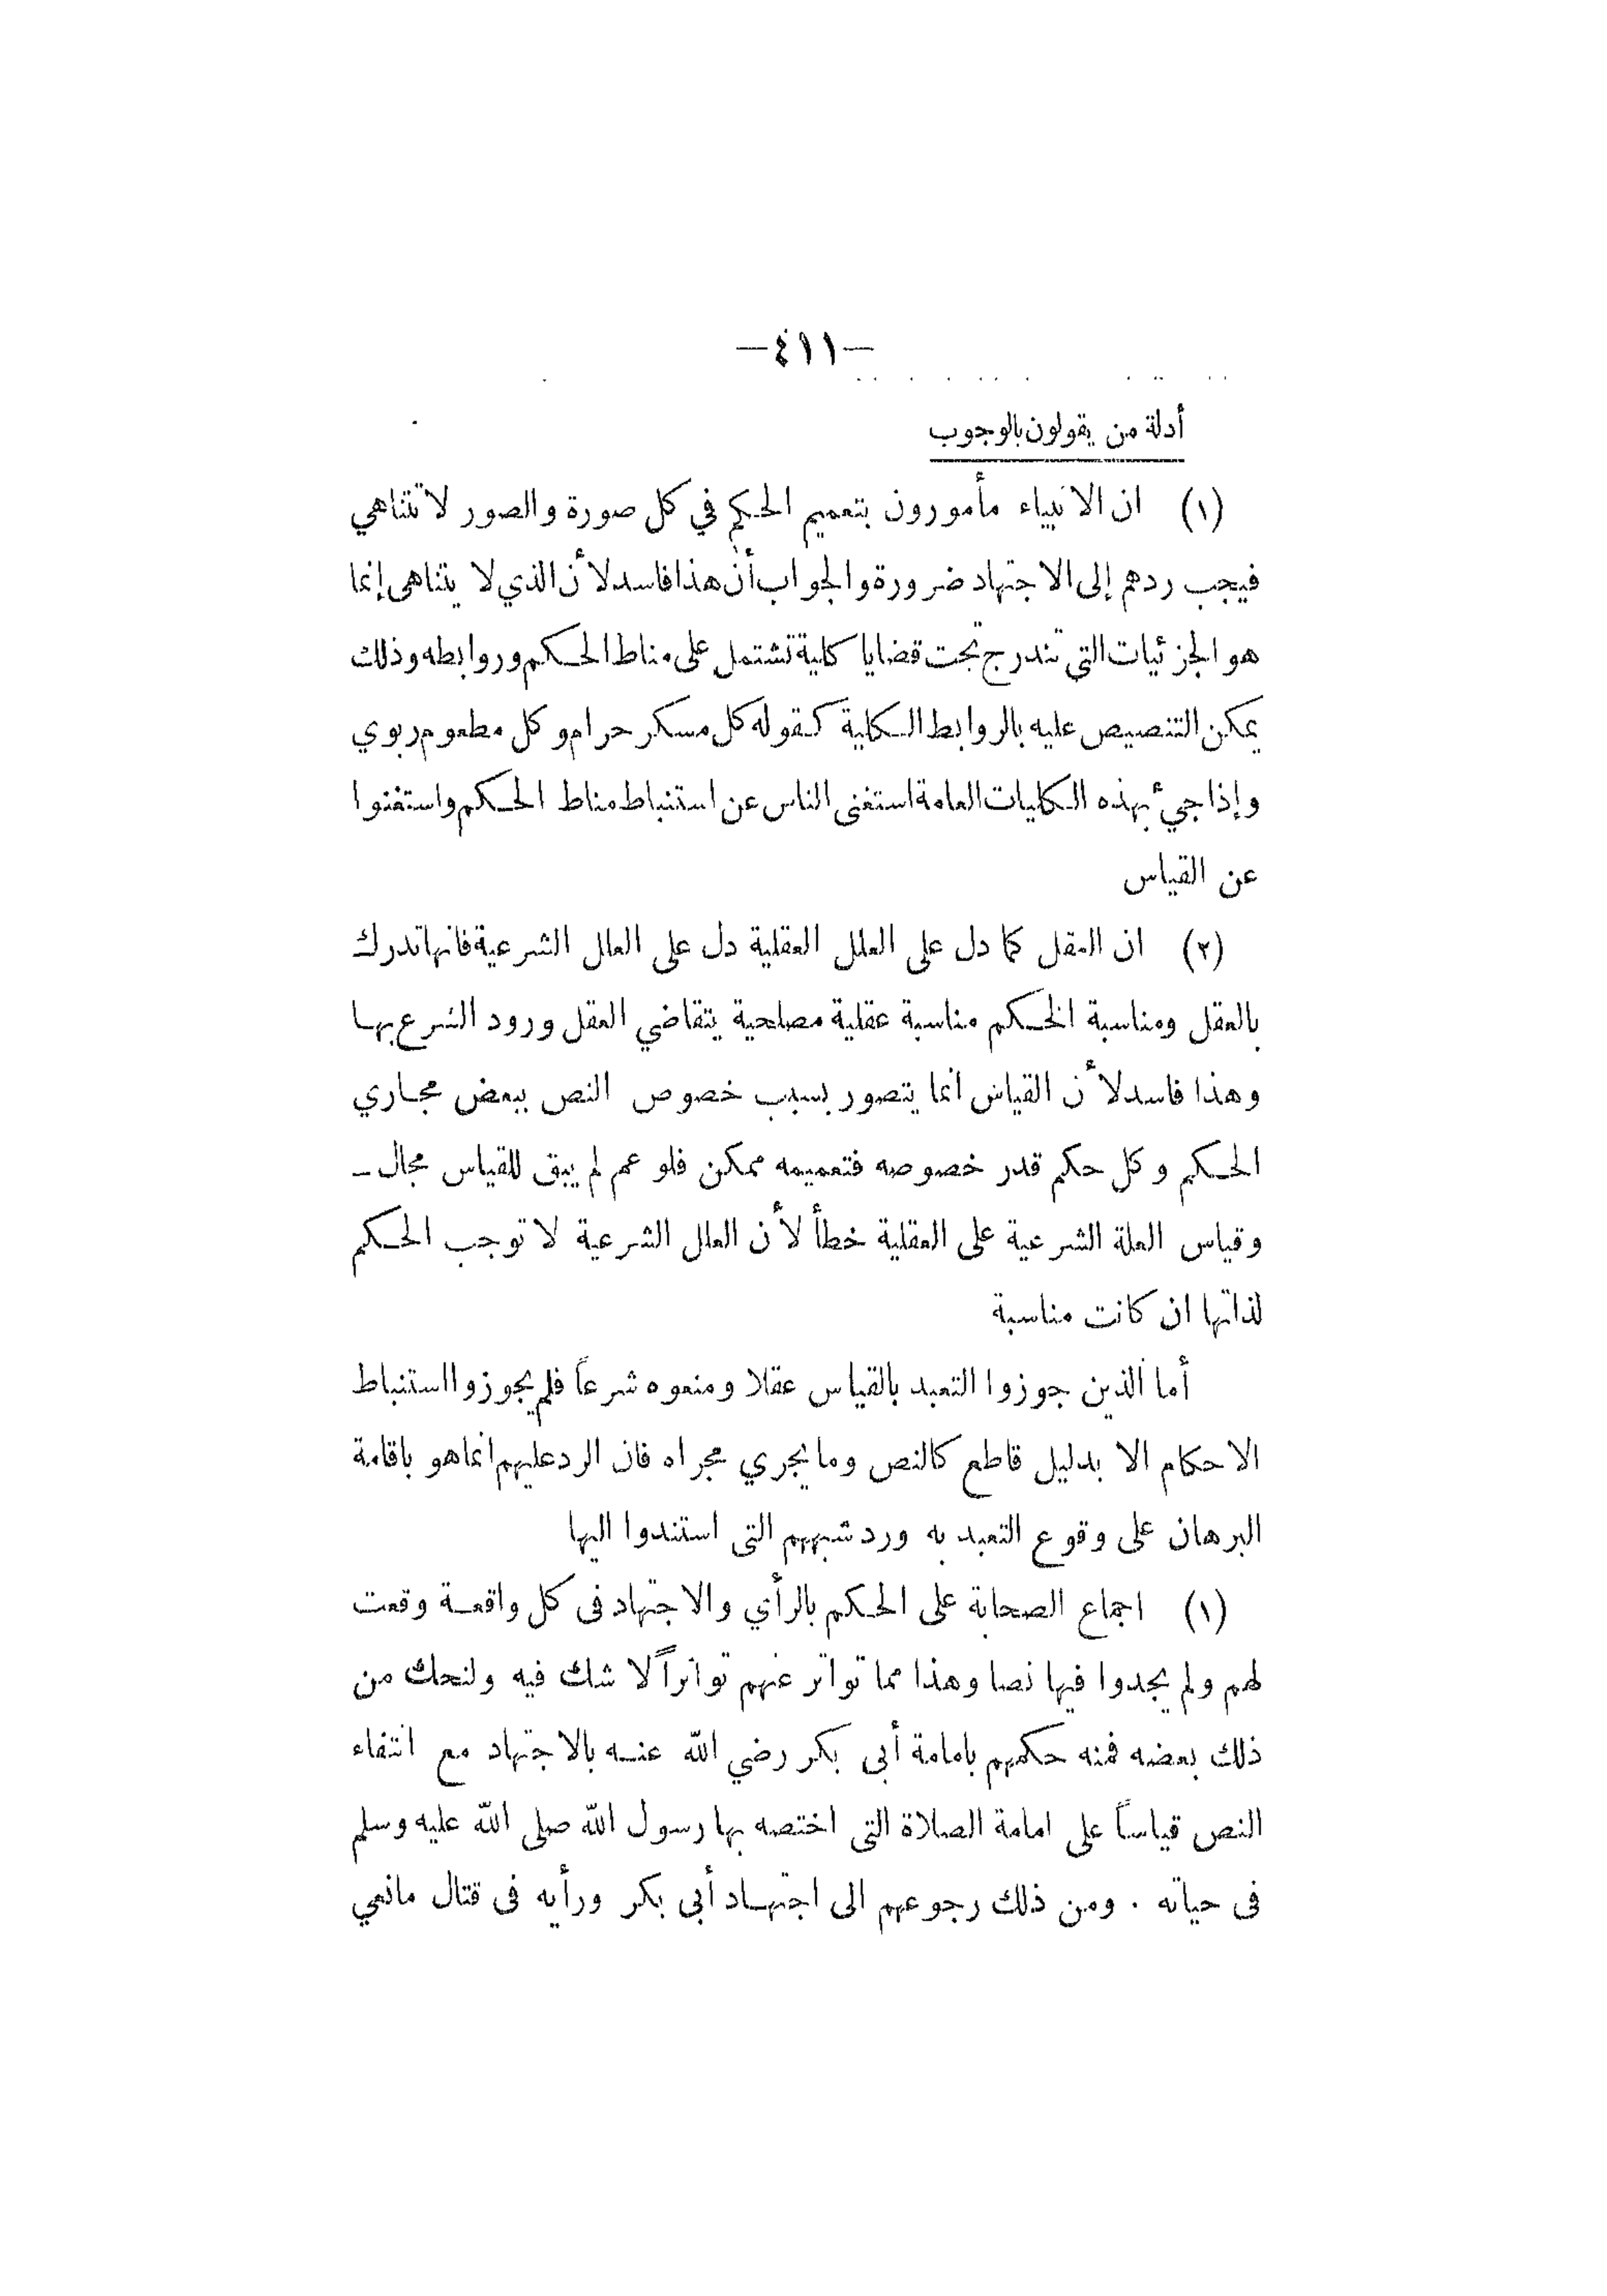 —٤١١—
أدلة من يقولون بالوجوب
(١) ان الانبياء مأمورون بتعميم الحكم في كل صورة والصور لا تتناهي
فيجب ردهم إلى الاجتهاد ضرورة والجواب أن هذا فاسد لأن الذي لا يتناهى إنما
هو الجزئيات التي تندرج تحت قضايا كلية تشتمل على مناط الحكم وروابطه وذلك
يمكن التنصيص عليه بالروابط الكلية كقوله كل مسكر حرام وكل مطعوم ربوي
وإذا جيء بهذه الكليات العامة استغنى الناس عن استنباط مناط الحكم واستغنوا
عن القياس
(٢) ان العقل كما دل على العلل العقلية دل على العلل الشرعية فانها تدرك
بالعقل ومناسبة الحكم مناسبة عقلية مصلحية يتقاضي العقل ورود الشرع بها
وهذا فاسد لأن القياس انما يتصور بسبب خصوص النص ببعض مجاري
الحكم وكل حكم قدر خصوصه فتعميمه ممكن فلو عم لم يبق للقياس مجال —
وقياس العلة الشرعية على العقلية خطأ لأن العلل الشرعية لا توجب الحكم
لذاتها ان كانت مناسبة
أما الذين جوزوا التعبد بالقياس عقلا ومنعوه شرعاً فلم يجوزوا استنباط
الاحكام الا بدليل قاطع كالنص وما يجري مجراه فان الرد عليهم انما هو باقامة
البرهان على وقوع التعبد به ورد شبههم التي استندوا اليها
(١) اجماع الصحابة على الحكم بالرأي والاجتهاد فى كل واقعة وقعت
لهم ولم يجدوا فيها نصا وهذا مما تواتر عنهم تواتراً لا شك فيه ولنحك من
ذلك بعضه فمنه حكمهم بامامة أبى بكر رضي الله عنه بالاجتهاد مع انتفاء
النص قياساً على امامة الصلاة التى اختصه بها رسول الله صلى الله عليه وسلم
فى حياته . ومن ذلك رجوعهم الى اجتهاد أبى بكر ورأيه فى قتال مانعي